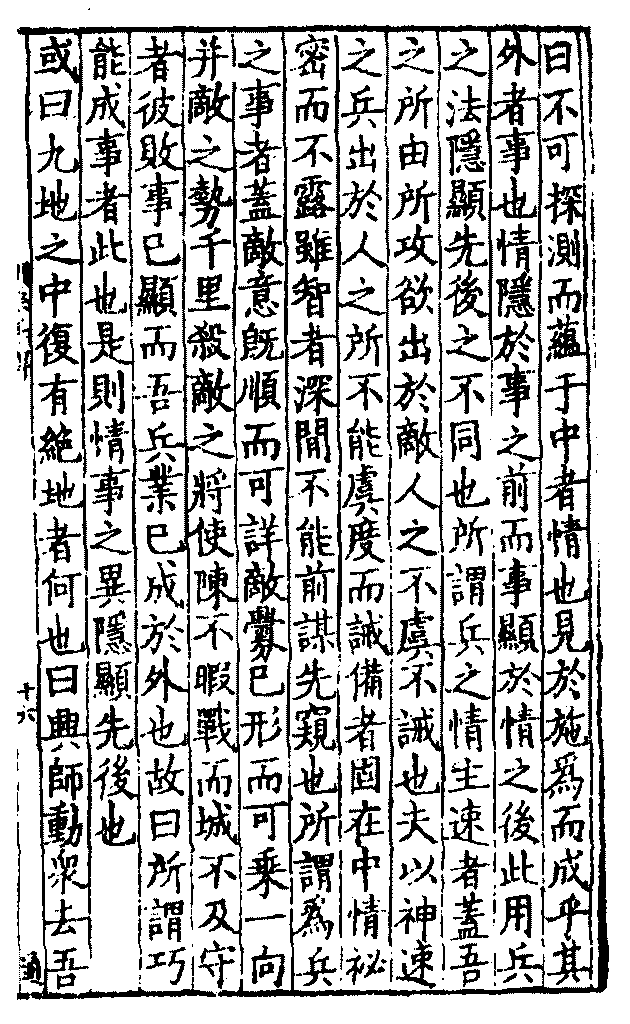 曰不可探測而蘊于中者情也見於施爲而成乎其
外者事也情隱於事之前而事顯於情之後此用兵
之法隱顯先後之不同也所謂兵之情主速者蓋吾
之所由所攻欲出於敵人之不虞不誡也夫以神速
之兵出於人之所不能虞度而誡備者固在中情祕
密而不露雖智者深間不能前謀先窺也所謂爲兵
之事者蓋敵意既順而可詳敵釁已形而可乗一向
并敵之勢千里殺敵之將使陳不暇戰而城不及守
者彼敗事已顯而吾兵業已成於外也故曰所謂巧
能成事者此也是則情事之異隱顯先後也
或曰九地之中復有絶地者何也曰興師動衆去吾
十六
通